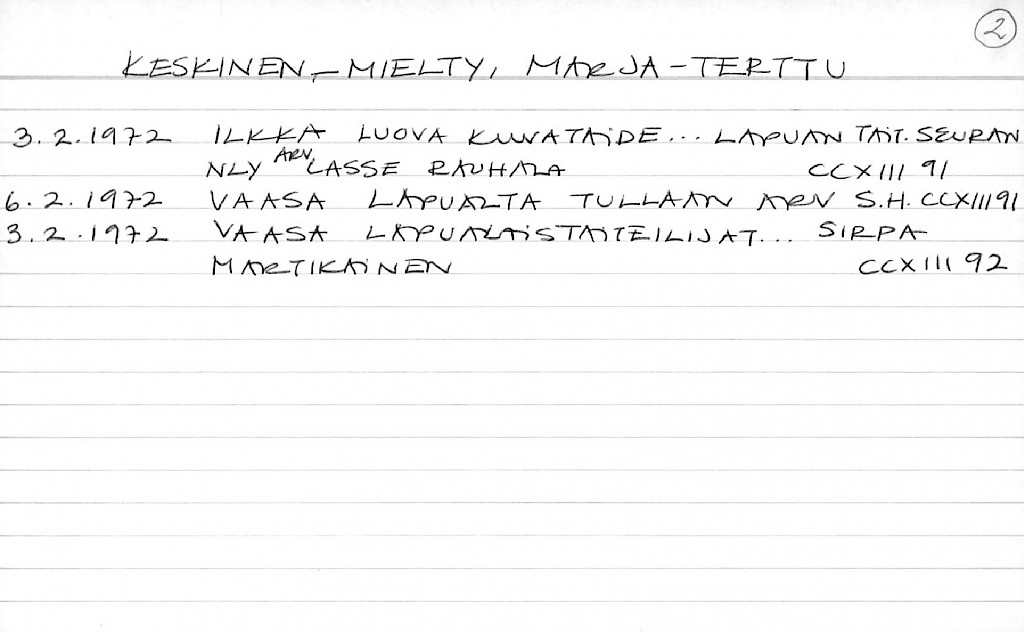 2
KESKINEN-MIELTY, MARJA-TERTTU
3.2.1972 ILKKA LUOVA KUVATAIDE... LAPUAN TAIT. SEURAN
NLY ARV, LASSE RAUHALA CCXIII 91
6.2.1972 VAASA LAPUALTA TULLAAN ARV S.H. CCXIII 91
3.2.1972 VAASA LAPUALAISTAITEILIJAT... SIRPA
MARTIKAINEN CCXIII 92